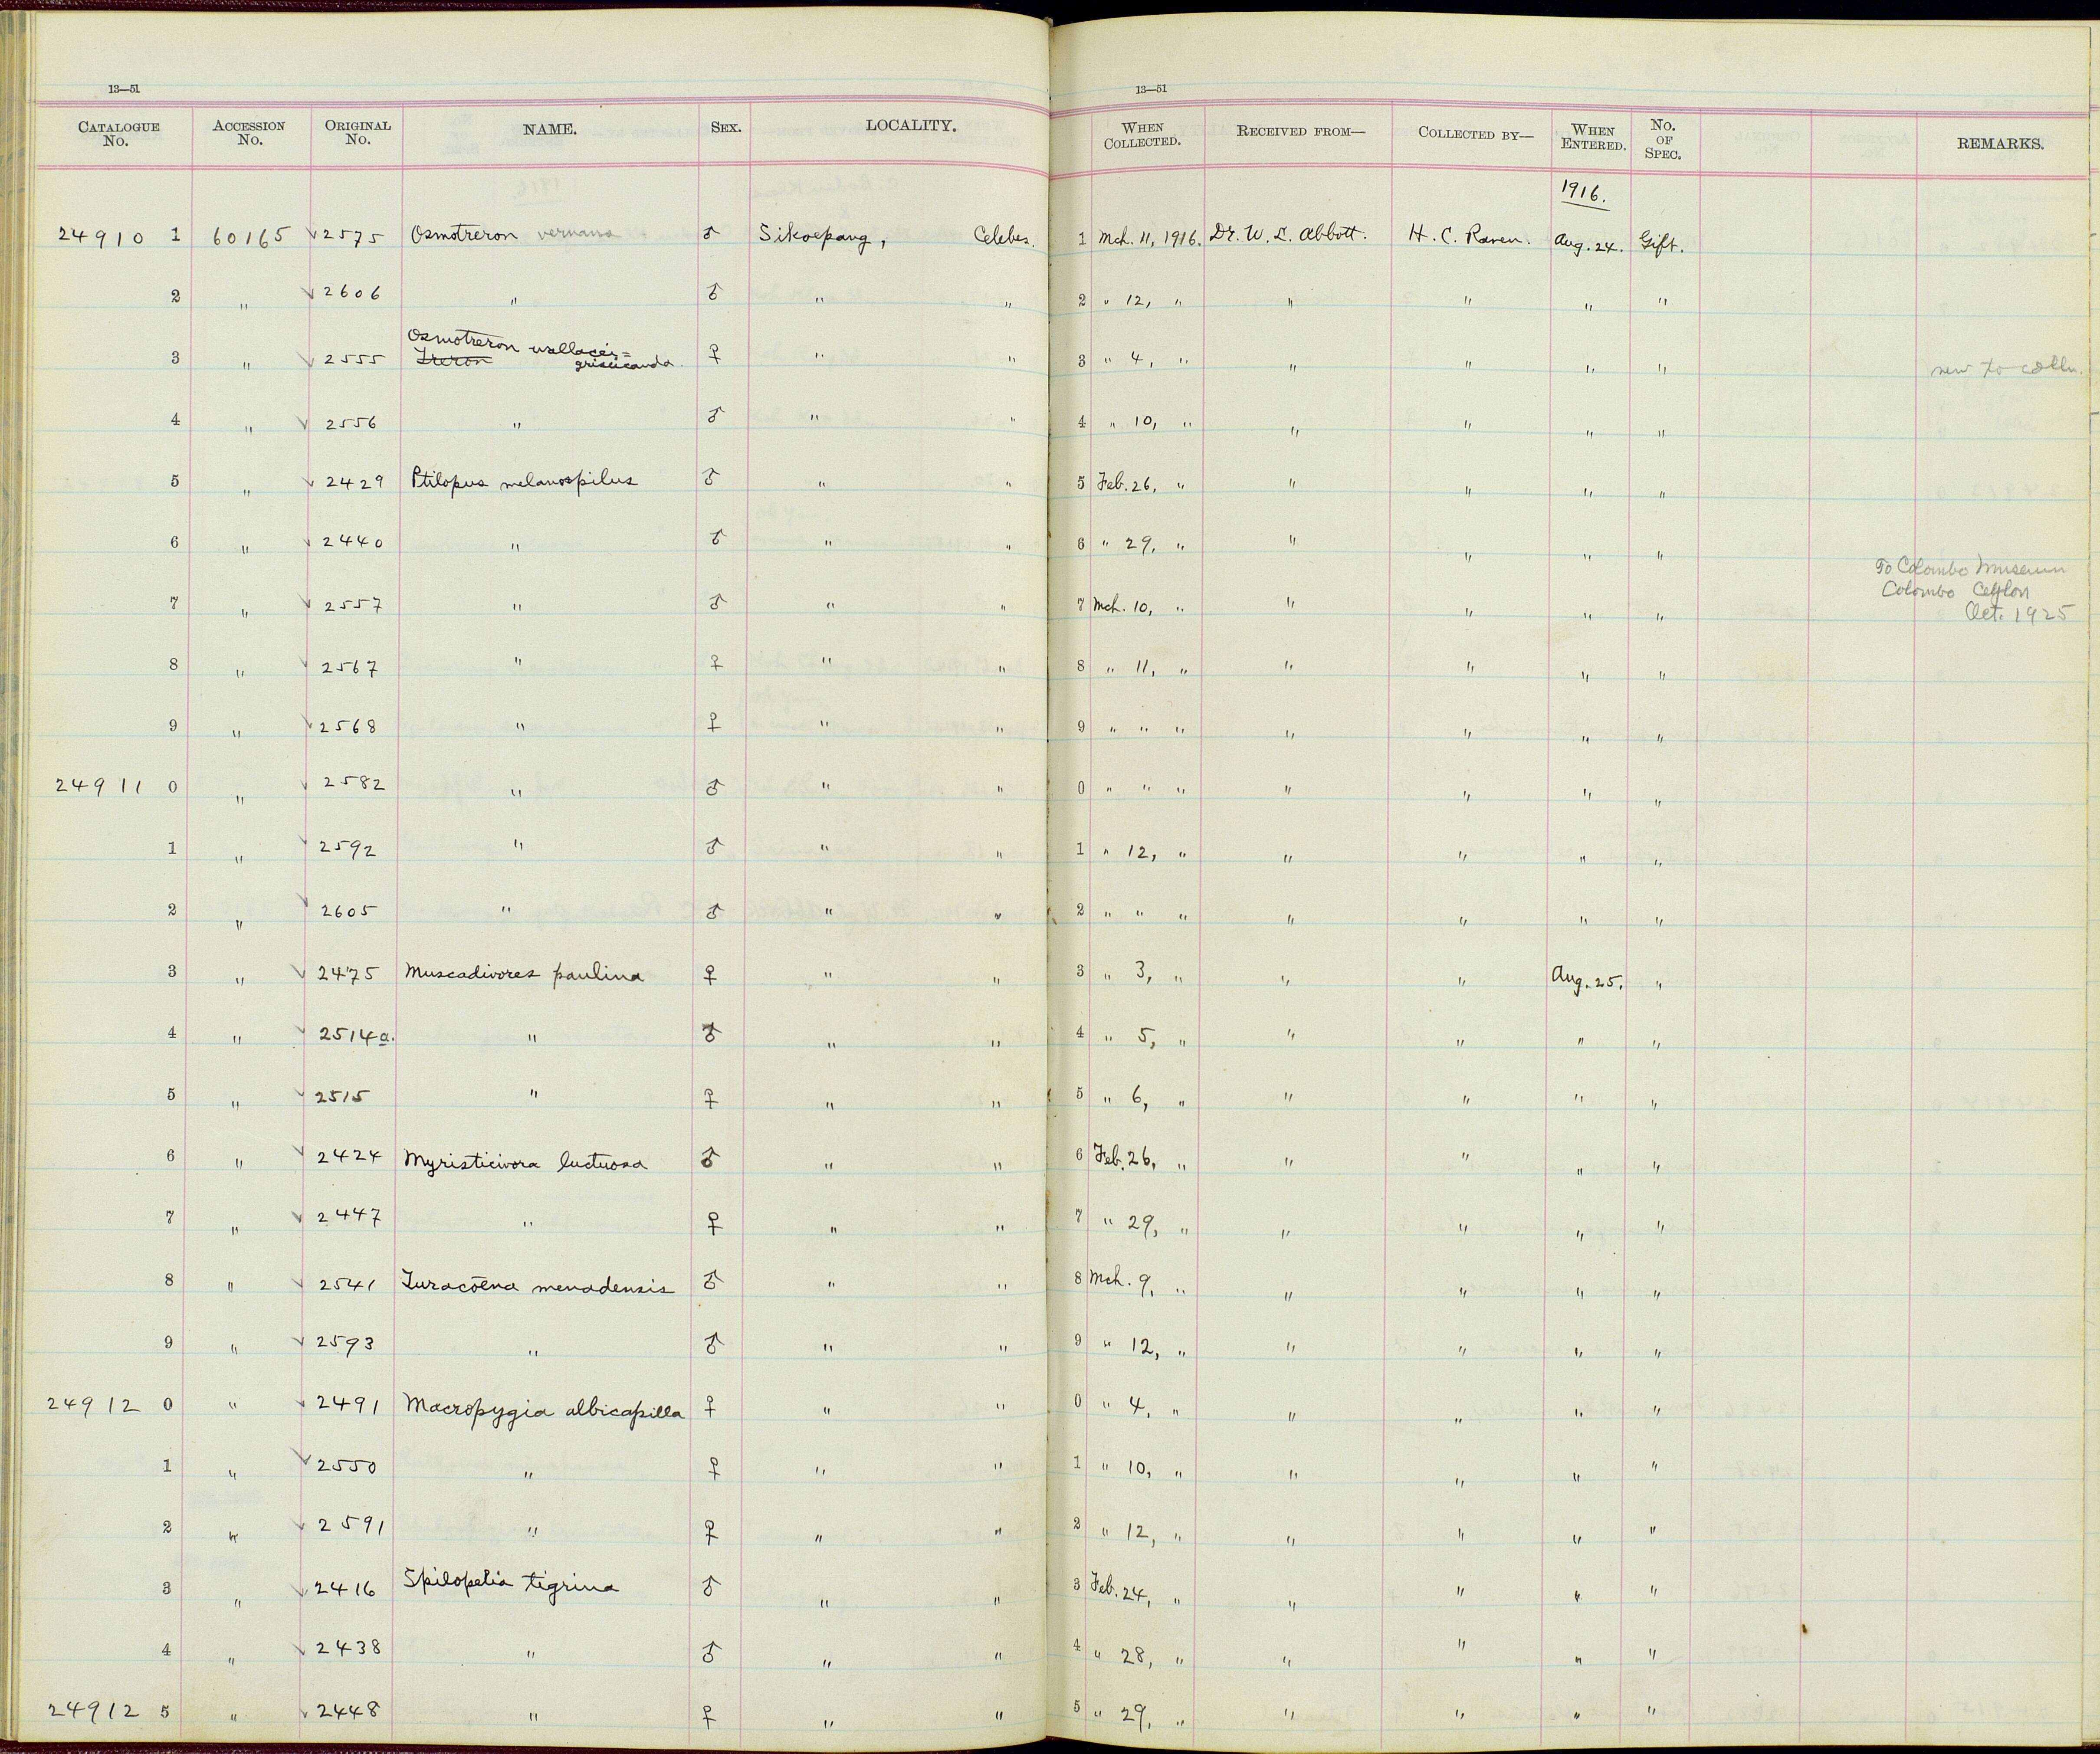 13—51
13—51
CATALOGUE No. ACCESSION No. ORIGINAL No. NAME. SEX. LOCALITY. WHEN COLLECTED. RECEIVED FROM— COLLECTED BY— WHEN ENTERED. No. OF SPEC. REMARKS.
1916.
24910 1 60165 √2575 Osmotreron vernans ♂ Sikoepang, Celebes. 1 Mch. 11, 1916. Dr. W. L. Abbott. H. C. Raven. Aug. 24. Gift.
2 " √2606 " ♂ " " 2 " 12, " " " " "
3 " √2555 Osmotreron wallacei= Treron griseicauda. ♀ " " 3 " 4, " " " " " new to colln.
4 " √2556 " ♂ " " 4 " 10, " " " " "
5 " √2429 Ptilopus melanospilus ♂ " " 5 Feb. 26, " " " " "
6 " √2440 " ♂ " " 6 " 29, " " " " "
To Colombo Museum
Colombo Ceylon
Oct. 1925
7 " √2557 " ♂ " " 7 Mch. 10, " " " " "
8 " √2567 " ♀ " " 8 " 11, " " " " "
9 " √2568 " ♀ " " 9 " " " " " " "
24911 0 " √2582 " ♂ " " 0 " " " " " " "
1 " √2592 " ♂ " " 1 " 12, " " " " "
2 " √2605 " ♂ " " 2 " " " " " " "
3 " √2475 Muscadivores paulina ♀ " " 3 " 3, " " " Aug. 25. "
4 " √2514a. " ♂ " " 4 " 5, " " " " "
5 " √2515 " ♀ " " 5 " 6, " " " " "
6 " √2424 Myristicivora luctuosa ♂ " " 6 Feb. 26, " " " " "
7 " √2447 " ♀ " " 7 " 29, " " " " "
8 " √2541 Turacoena menadensis ♂ " " 8 Mch. 9, " " " " "
9 " √2593 " ♂ " " 9 " 12, " " " " "
24912 0 " √2491 Macropygia albicapilla ♀ " " 0 " 4, " " " " "
1 " √2550 " ♀ " " 1 " 10, " " " " "
2 " √2591 " ♀ " " 2 " 12, " " " " "
3 " √2416 Spilopelia tigrina ♂ " " 3 Feb. 24, " " " " "
4 " √2438 " ♂ " " 4 " 28, " " " " "
24912 5 " √2448 " ♀ " " 5 " 29, " " " " "